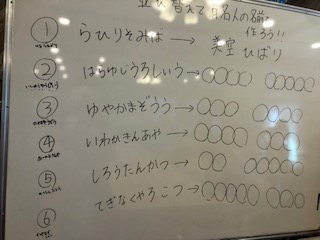 並び替えて有名人の名前を
作ろう!!
① らひりそみば → 美空 ひばり
② はらゆじうろしいう → ○○○○ ○○○○○
③ ゆやかまぞうう → ○○○ ○○○○
④ いわかきんあや → ○○○○ ○○○
⑤ しろうたんかつ → ○○ ○○○○○
⑥ てぎなくやろこつ → ○○○○○ ○○○